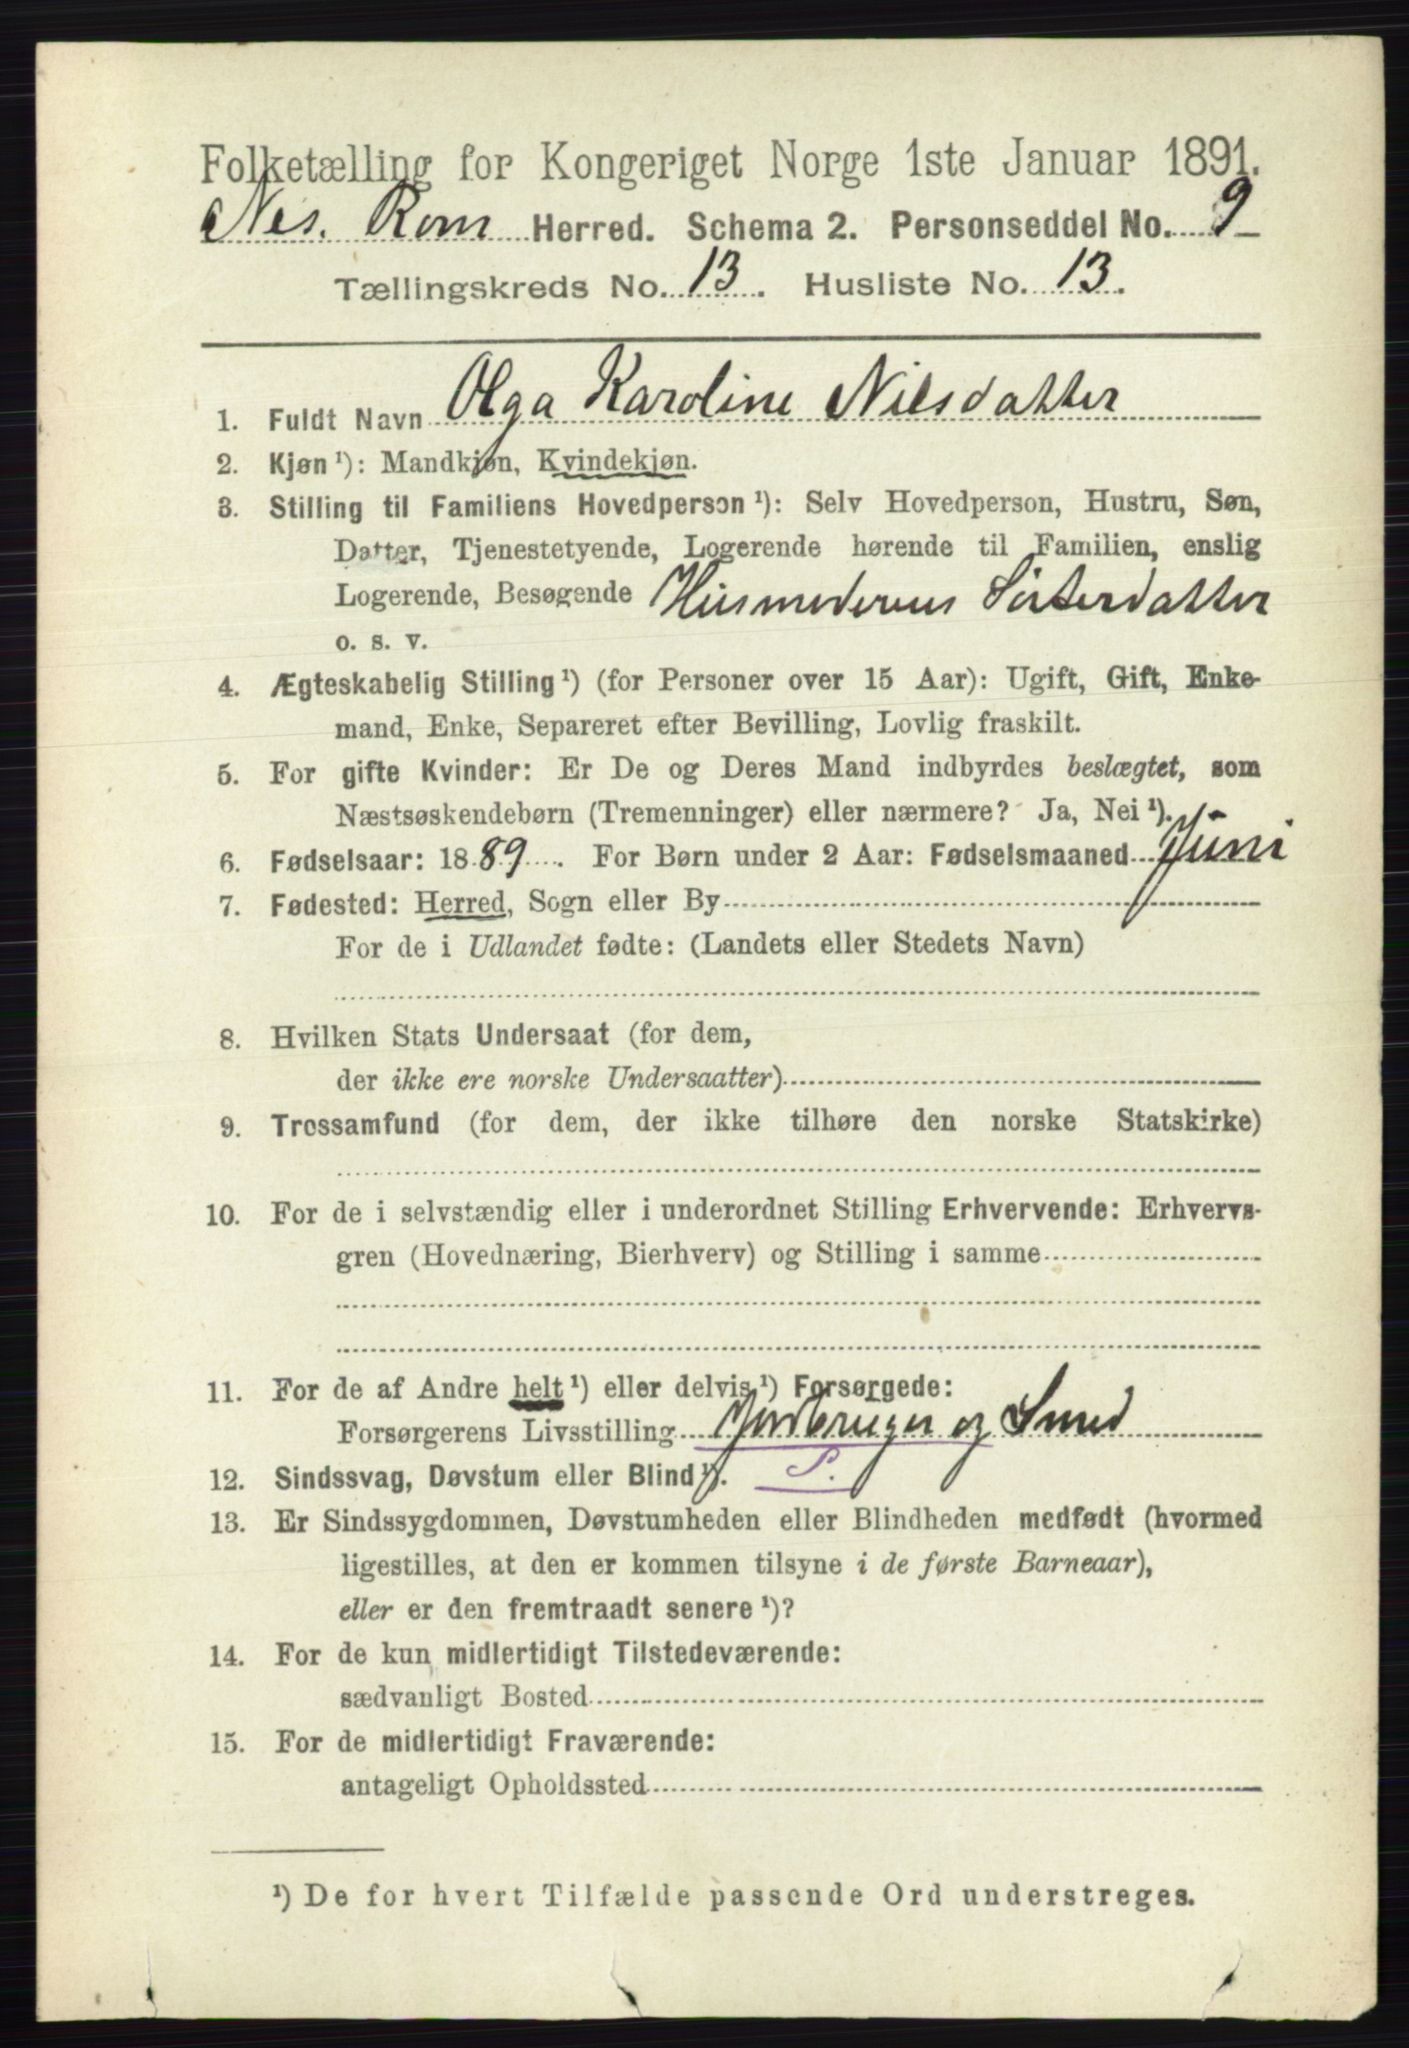 Folketælling for Kongeriget Norge 1ste Januar 1891.
Nes. Rom Herred. Schema 2. Personseddel No. 9
Tællingskreds No. 13. Husliste No. 13.
1. Fuldt Navn Olga Karoline Nilsdatter
2. Kjøn ¹): Mandkjøn, Kvindekjøn.
3. Stilling til Familiens Hovedperson ¹): Selv Hovedperson, Hustru, Søn,
Datter, Tjenestetyende, Logerende hørende til Familien, enslig
Logerende, Besøgende Husmoderens Sösterdatter
o. s. v.
4. Ægteskabelig Stilling ¹) (for Personer over 15 Aar): Ugift, Gift, Enke-
mand, Enke, Separeret efter Bevilling, Lovlig fraskilt.
5. For gifte Kvinder: Er De og Deres Mand indbyrdes beslægtet, som
Næstsøskendebørn (Tremenninger) eller nærmere? Ja, Nei ¹).
6. Fødselsaar: 1889. For Børn under 2 Aar: Fødselsmaaned Juni
7. Fødested: Herred, Sogn eller By
For de i Udlandet fødte: (Landets eller Stedets Navn)
8. Hvilken Stats Undersaat (for dem,
der ikke ere norske Undersaatter)
9. Trossamfund (for dem, der ikke tilhøre den norske Statskirke)
10. For de i selvstændig eller i underordnet Stilling Erhvervende: Erhvervs-
gren (Hovednæring, Bierhverv) og Stilling i samme
11. For de af Andre helt ¹) eller delvis ¹) Forsørgede:
Forsørgerens Livsstilling Jordbruger og Smed
12. Sindssvag, Døvstum eller Blind ¹). S.
13. Er Sindssygdommen, Døvstumheden eller Blindheden medfødt (hvormed
ligestilles, at den er kommen tilsyne i de første Barneaar),
eller er den fremtraadt senere ¹)?
14. For de kun midlertidigt Tilstedeværende:
sædvanligt Bosted
15. For de midlertidigt Fraværende:
antageligt Opholdssted
¹) De for hvert Tilfælde passende Ord understreges.